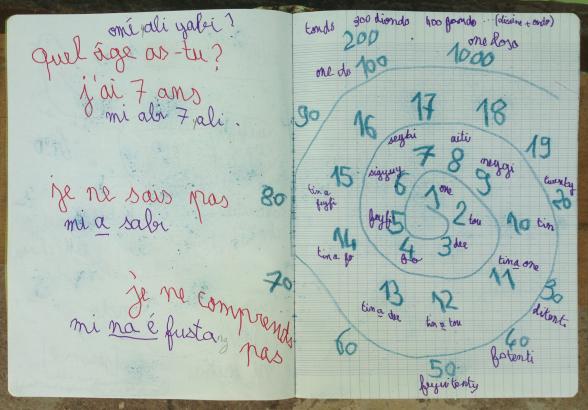 omi ali yabi ?
quel âge as-tu ?
j'ai 7 ans
mi abi 7 ali .
je ne sais pas
mi a sabi
je ne comprends
pas
mi na é fusta
tondo 300 diondo 400 fondo
200
one do 100
1000
90
16 17 18 19
seybi aiti
7 8 9
15 6 1 one
80 20
5 2 tou 10 tin
14 4 3 dee
tin a fo tin a one
11
70 13 12 30
tin a dee tin a tou ditenti
60 40
fotenti
50
feyfitenty